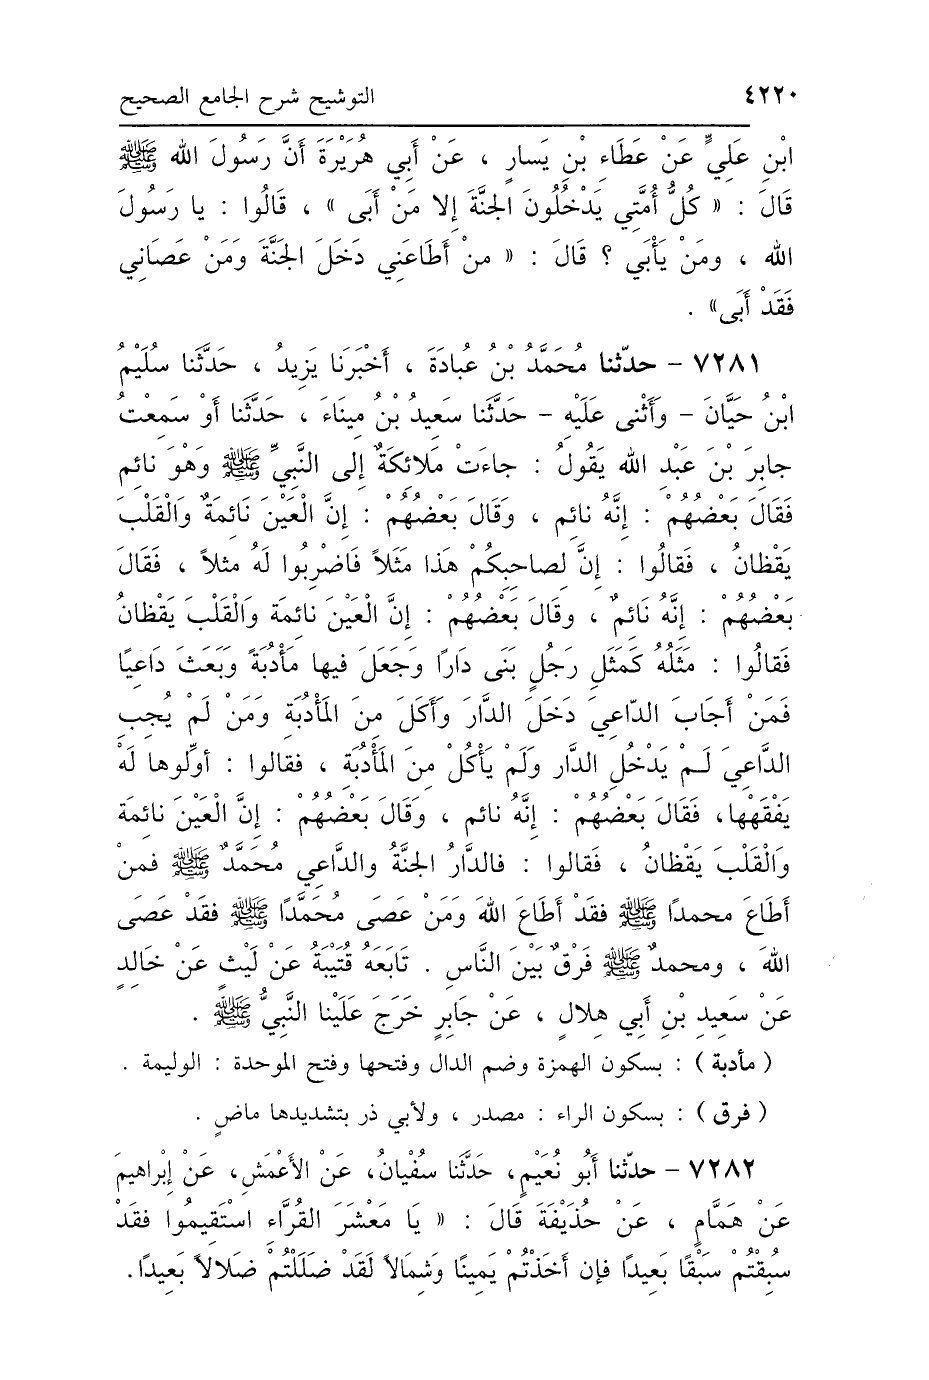 ٤٢٢٠ التوشيح شرح الجامع الصحيح
ابْنِ عَلِيٍّ عَنْ عَطَاءِ بْنِ يَسارٍ ، عَنْ أَبِي هُرَيْرَةَ أَنَّ رَسُولَ الله ﷺ
قَالَ : « كُلُّ أُمَّتِي يَدْخُلُونَ الجَنَّةَ إِلا مَنْ أَبَى » ، قَالُوا : يا رَسُولَ
الله ، ومَنْ يَأْبَى ؟ قَالَ : « منْ أَطَاعَنِي دَخَلَ الجَنَّةَ وَمَنْ عَصَانِي
فَقَدْ أَبَى» .
٧٢٨١ – حدّثنا مُحَمَّدُ بْنُ عُبادَةَ ، أَخْبَرَنَا يَزِيدُ ، حَدَّثَنا سُلَيْمُ
ابْنُ حَيَّانَ – وَأَثْنى عَلَيْهِ – حَدَّثَنا سَعِيدُ بْنُ مِينَاءَ ، حَدَّثَنا أَوْ سَمِعْتُ
جابِرَ بْنَ عَبْدِ الله يَقُولُ : جاءَتْ مَلائِكَةٌ إِلى النَّبِيِّ ﷺ وَهْوَ نائِم
فَقَالَ بَعْضُهُمْ : إِنَّهُ نائِم ، وَقَالَ بَعْضُهُمْ : إِنَّ الْعَيْنَ نَائِمَةٌ وَالْقَلْبَ
يَقْظانُ ، فَقالُوا : إِنَّ لِصاحِبِكُمْ هَذا مَثَلاً فَاضْرِبُوا لَهُ مثلاً ، فَقَالَ
بَعْضُهُمْ : إِنَّهُ نَائِمٌ ، وقَالَ بَعْضُهُمْ : إِنَّ الْعَيْنَ نائِمَة وَالْقَلْبَ يَقْظانُ
فَقالُوا : مَثَلُهُ كَمَثَلِ رَجُلٍ بَنَى دَارًا وَجَعَلَ فيها مَأْدُبَةً وَبَعَثَ دَاعِيًا
فَمَنْ أَجَابَ الدّاعِيَ دَخَلَ الدَّارَ وَأَكَلَ مِنَ المَأْدُبَةِ وَمَنْ لَمْ يُجِبِ
الدَّاعِيَ لَـمْ يَدْخُلِ الدَّار وَلَمْ يَأْكُلْ مِنَ المَأْدُبَة ، فقالوا : أوِّلُوها لَهُ
يَفْقَهْها، فَقَالَ بَعْضُهُمْ : إِنَّهُ نائم ، وَقَالَ بَعْضُهُمْ : إِنَّ الْعَيْنَ نائِمَة
وَالْقَلْبَ يَقْظانُ ، فَقالوا : فالدَّارُ الجَنَّةُ والدَّاعِي مُحَمَّدٌ ﷺ فمنْ
أَطَاعَ محمدًا ﷺ فقَدْ أَطَاعَ اللهَ وَمَنْ عَصَى مُحَمَّدًا ﷺ فقَدْ عَصَى
اللهَ ، ومحمدٌ ﷺ فَرْقٌ بَيْنَ النَّاسِ . تَابَعَهُ قُتَيْبَةُ عَنْ لَيْثٍ عَنْ خالِدٍ
عَنْ سَعِيدِ بْنِ أَبِي هلالٍ ، عَنْ جَابِرٍ خَرَجَ عَلَيْنا النَّبِيُّ ﷺ .
( مأدبة ) : بسكون الهمزة وضم الدال وفتحها وفتح الموحدة : الوليمة .
( فرق ) : بسكون الراء : مصدر ، ولأبي ذر بتشديدها ماضٍ .
٧٢٨٢ – حدّثنا أَبُو نُعَيْمٍ، حَدَّثَنا سُفْيانُ، عَنْ الأَعْمَشِ، عَنْ إِبْراهِيمَ
عَنْ هَمَّامٍ ، عَنْ حُذَيْفَةَ قَالَ : « يَا مَعْشَرَ القُرَّاءِ اسْتَقِيمُوا فقَدْ
سُبِقْتُمْ سَبْقًا بَعِيدًا فإن أَخَذْتُمْ يَمِينًا وَشِمالاً لَقَدْ ضَلَلْتُمْ ضَلالاً بَعِيدًا.